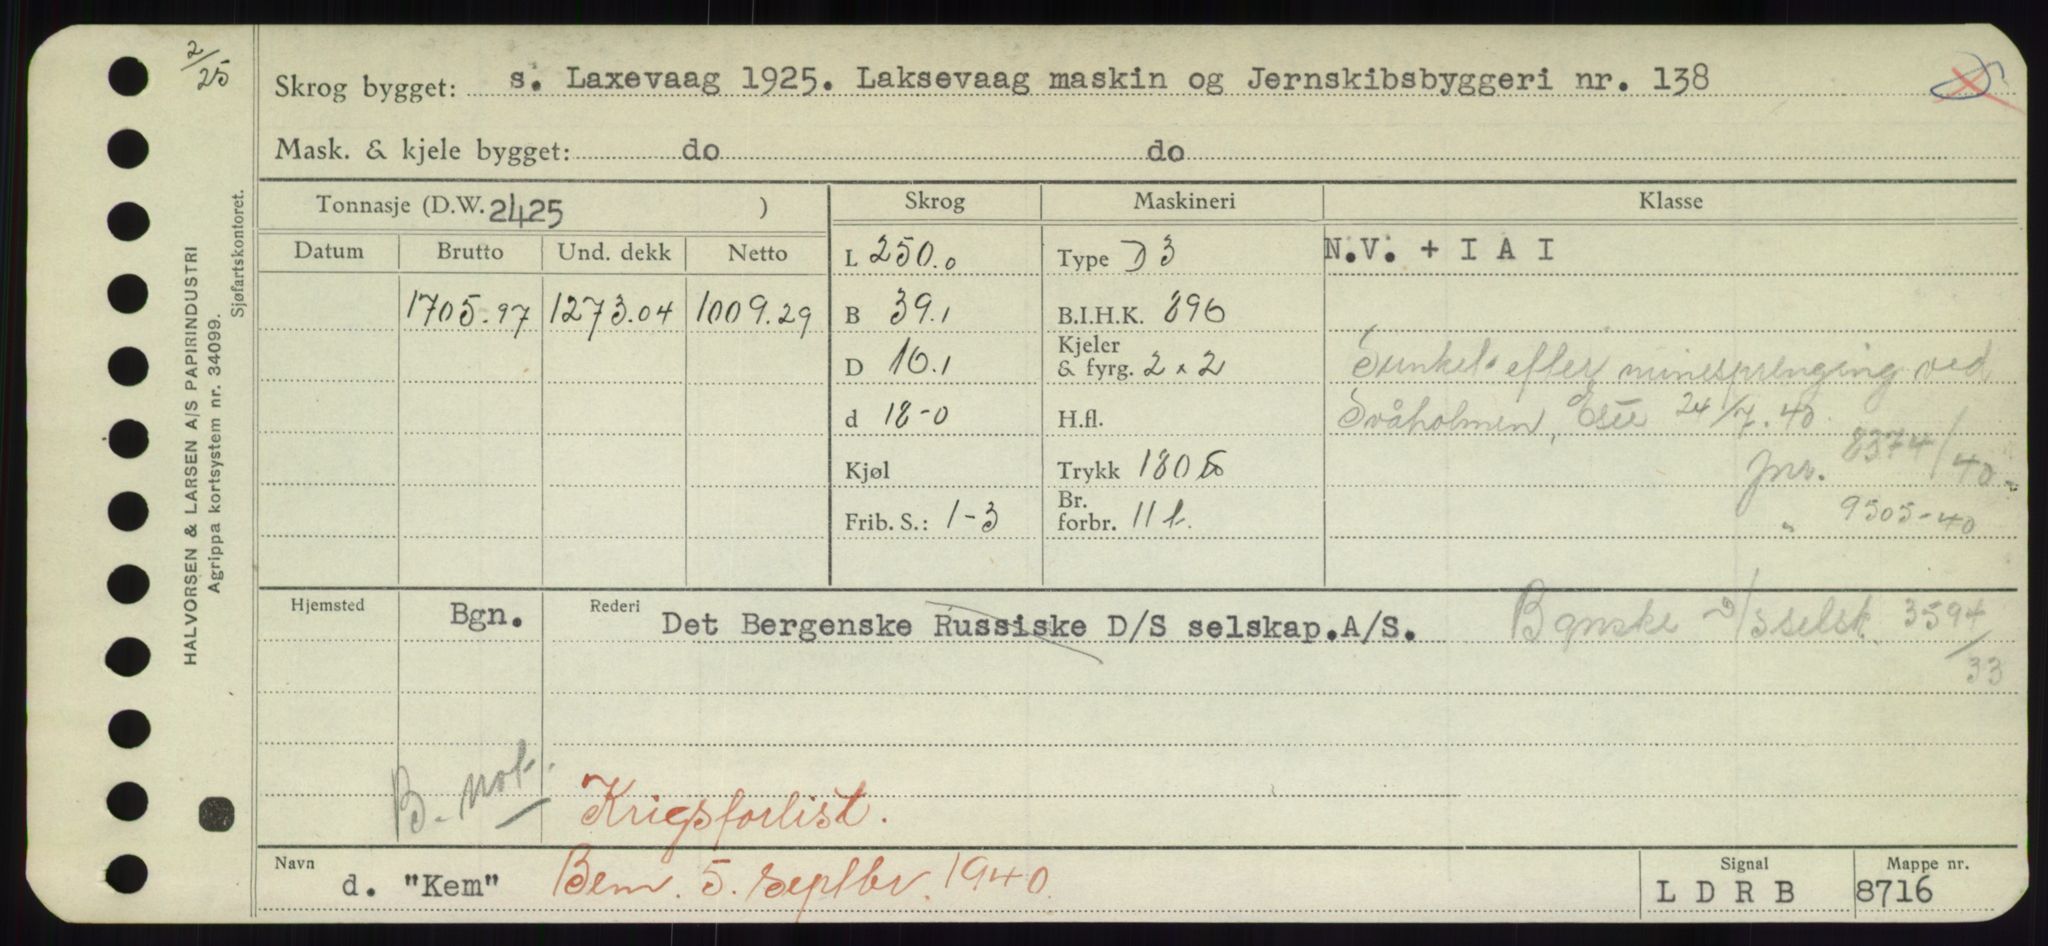 2/25
Skrog bygget: s. Laxevaag 1925. Laksevaag maskin og Jernskibsbyggeri nr. 138
Mask. & kjele bygget: do do
Tonnasje (D.W. 2425 ) Skrog Maskineri Klasse
Datum Brutto Und. dekk Netto
L 250.0 Type D 3 N.V. + I A I
1705.97 1273.04 1009.29 B 39.1 B.I.H.K. 896
D 16.1 Kjeler & fyrg. 2 x 2 Sunket efter minesprenging ved
d 18-0 H.fl. Svåholmen, 24/7.40
Kjøl Trykk 180 jnr. 8374/40
Frib. S.: 1-3 Br. forbr. 11 t. " 9505-40
Hjemsted Bgn. Rederi Det Bergenske Russiske D/S selskap.A/S. Bgnske D/Sselsk. 3594/33
B. not.
Krigsforlist.
Navn d. "Kem" Bem. 5. septbr. 1940. Signal L D R B Mappe nr. 8716
HALVORSEN & LARSEN A/S PAPIRINDUSTRI
Agrippa kortsystem nr. 34099.
Sjøfartskontoret.